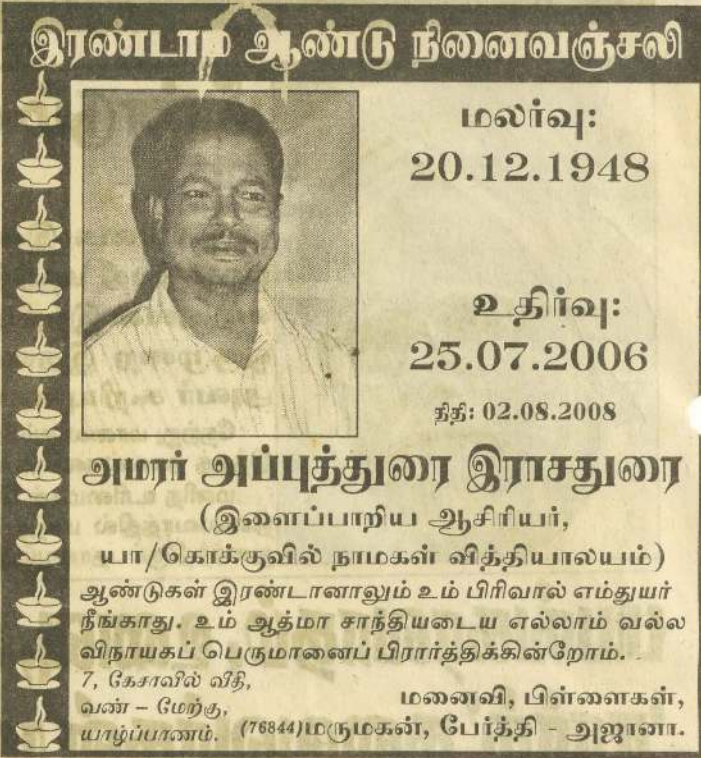 இரண்டாம் ஆண்டு நினைவஞ்சலி
மலர்வு:
20.12.1948
உதிர்வு:
25.07.2006
திதி: 02.08.2008
அமரர் அப்புத்துரை இராசதுரை
(இளைப்பாறிய ஆசிரியர்,
யா/கொக்குவில் நாமகள் வித்தியாலயம்)
ஆண்டுகள் இரண்டானாலும் உம் பிரிவால் எம்துயர்
நீங்காது. உம் ஆத்மா சாந்தியடைய எல்லாம் வல்ல
விநாயகப் பெருமானைப் பிரார்த்திக்கின்றோம்.
7, கேசாவில் வீதி,
வண் – மேற்கு,
யாழ்ப்பாணம். (76844)
மனைவி, பிள்ளைகள்,
மருமகன், பேர்த்தி - அஜானா.